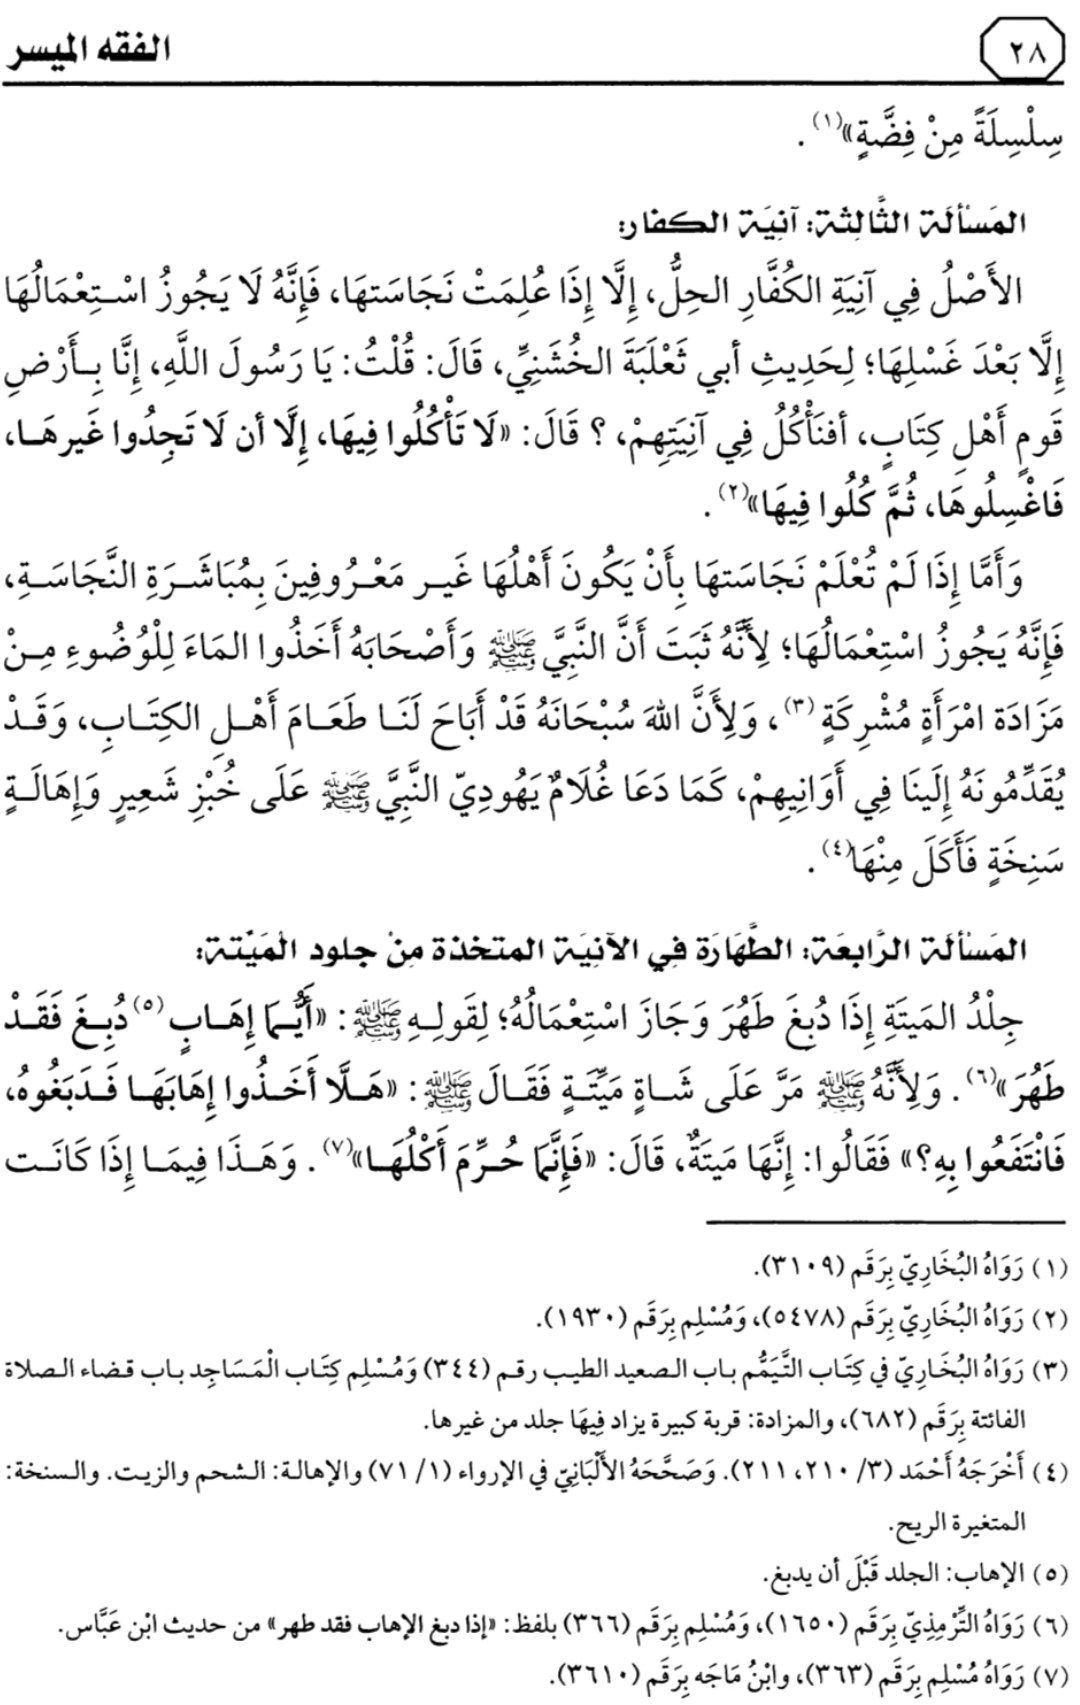 ٢٨
الفقه الميسر
سِلْسِلَةً مِنْ فِضَّةٍ»(١).
المَسْألَة الثَّالِثَة: آنِيَة الكفار:
الأَصْلُ فِي آنِيَةِ الكُفَّارِ الحِلُّ، إِلَّا إِذَا عُلِمَتْ نَجَاسَتهَا، فَإِنَّهُ لَا يَجُوزُ اسْتِعْمَالُهَا
إِلَّا بَعْدَ غَسْلِهَا؛ لِحَدِيثِ أبي ثَعْلَبَةَ الخُشَنِيِّ، قَالَ: قُلْتُ: يَا رَسُولَ اللَّهِ، إِنَّا بِأَرْضِ
قَومٍ أَهْلِ كِتَابٍ، أفنَأْكُلُ فِي آنِيَتِهِمْ، ؟ قَالَ: «لَا تَأْكُلُوا فِيهَا، إِلَّا أن لَا تَجِدُوا غَيرهَا،
فَاغْسِلُوهَا، ثُمَّ كُلُوا فِيهَا»(٢).
وَأَمَّا إِذَا لَمْ تُعْلَمْ نَجَاسَتهَا بِأَنْ يَكُونَ أَهْلُهَا غَير مَعْرُوفِينَ بِمُبَاشَرَةِ النَّجَاسَةِ،
فَإِنَّهُ يَجُوزُ اسْتِعْمَالُهَا؛ لِأَنَّهُ ثَبَتَ أَنَّ النَّبِيَّ ﷺ وَأَصْحَابَهُ أَخَذُوا المَاءَ لِلْوُضُوءِ مِنْ
مَزَادَة امْرَأَةٍ مُشْرِكَةٍ(٣)، وَلِأَنَّ اللهَ سُبْحَانَهُ قَدْ أَبَاحَ لَنَا طَعَامَ أَهْلِ الكِتَابِ، وَقَدْ
يُقَدِّمُونَهُ إِلَينَا فِي أَوَانِيهِمْ، كَمَا دَعَا غُلَامٌ يَهُودِيّ النَّبِيَّ ﷺ عَلَى خُبْزِ شَعِيرٍ وَإِهَالَةٍ
سَنِخَةٍ فَأَكَلَ مِنْهَا(٤).
المَسْألَة الرَّابِعَة: الطَّهَارَة فِي الآنِيَة المتخذة مِنْ جلود الْمَيْتة:
جِلْدُ المَيتَةِ إِذَا دُبِغَ طَهُرَ وَجَازَ اسْتِعْمَالُهُ؛ لِقَولِهِ ﷺ: «أَيُّمَا إِهَابٍ(٥) دُبِغَ فَقَدْ
طَهُرَ»(٦). وَلِأَنَّهُ ﷺ مَرَّ عَلَى شَاةٍ مَيِّتَةٍ فَقَالَ ﷺ: «هَلَّا أَخَذُوا إِهَابَهَا فَدَبَغُوهُ،
فَانْتَفَعُوا بِهِ؟» فَقَالُوا: إِنَّهَا مَيتَةٌ، قَالَ: «فَإِنَّمَا حُرِّمَ أَكْلُهَا»(٧). وَهَذَا فِيمَا إِذَا كَانَت
(١) رَوَاهُ البُخَارِيّ بِرَقَم (٣١٠٩).
(٢) رَوَاهُ البُخَارِيّ بِرَقَم (٥٤٧٨)، وَمُسْلِم بِرَقَم (١٩٣٠).
(٣) رَوَاهُ البُخَارِيّ في كِتَاب التَّيَمُّم باب الصعيد الطيب رقم (٣٤٤) وَمُسْلِم كِتَاب الْمَسَاجِد باب قضاء الصلاة
الفائتة بِرَقَم (٦٨٢)، والمزادة: قربة كبيرة يزاد فِيهَا جلد من غيرها.
(٤) أَخْرَجَهُ أَحْمَد (٣/ ٢١٠، ٢١١). وَصَحَّحَهُ الأَلْبَانِيّ في الإرواء (١/ ٧١) والإهالة: الشحم والزيت. والسنخة:
المتغيرة الريح.
(٥) الإهاب: الجلد قَبْلَ أن يدبغ.
(٦) رَوَاهُ التِّرْمِذِيّ بِرَقَم (١٦٥٠)، وَمُسْلِم بِرَقَم (٣٦٦) بلفظ: «إذا دبغ الإهاب فقد طهر» من حديث ابْن عَبَّاس.
(٧) رَوَاهُ مُسْلِم بِرَقَم (٣٦٣)، وابْنُ مَاجَه بِرَقَم (٣٦١٠).